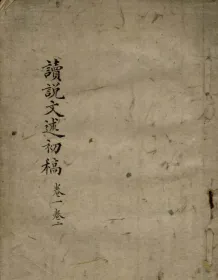 讀説文述初稿 卷一卷二